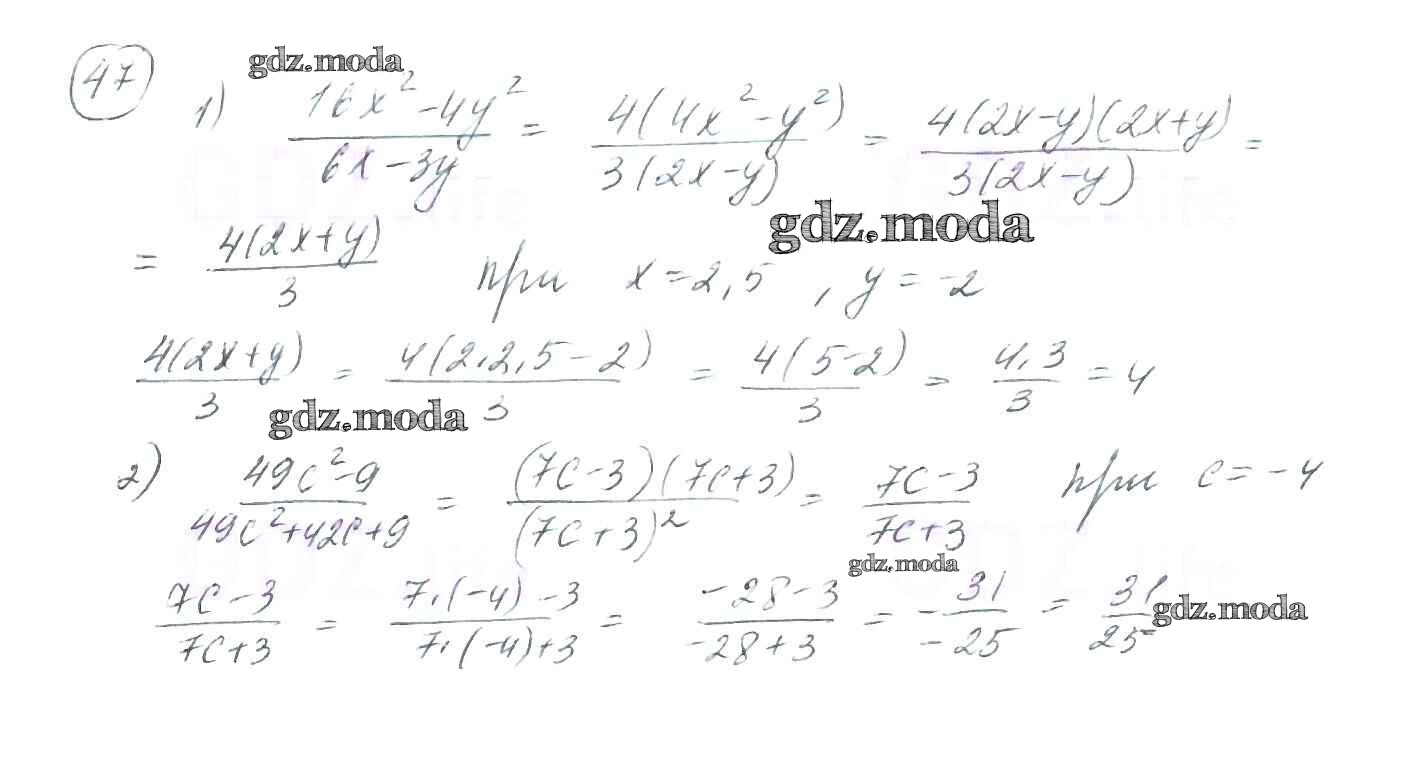 47
gdz.moda
1) (16x² - 4y²)/(6x - 3y) = 4(4x² - y²)/3(2x - y) = 4(2x - y)(2x + y)/3(2x - y) =
gdz.moda
= 4(2x + y)/3 при x = 2,5 , y = -2
4(2x + y)/3 = 4(2·2,5 - 2)/3 = 4(5 - 2)/3 = 4·3/3 = 4
gdz.moda
2) (49c² - 9)/(49c² + 42c + 9) = (7c - 3)(7c + 3)/(7c + 3)² = (7c - 3)/(7c + 3) при c = -4
gdz.moda
(7c - 3)/(7c + 3) = (7·(-4) - 3)/(7·(-4) + 3) = (-28 - 3)/(-28 + 3) = -31/-25 = 31/25
gdz.moda